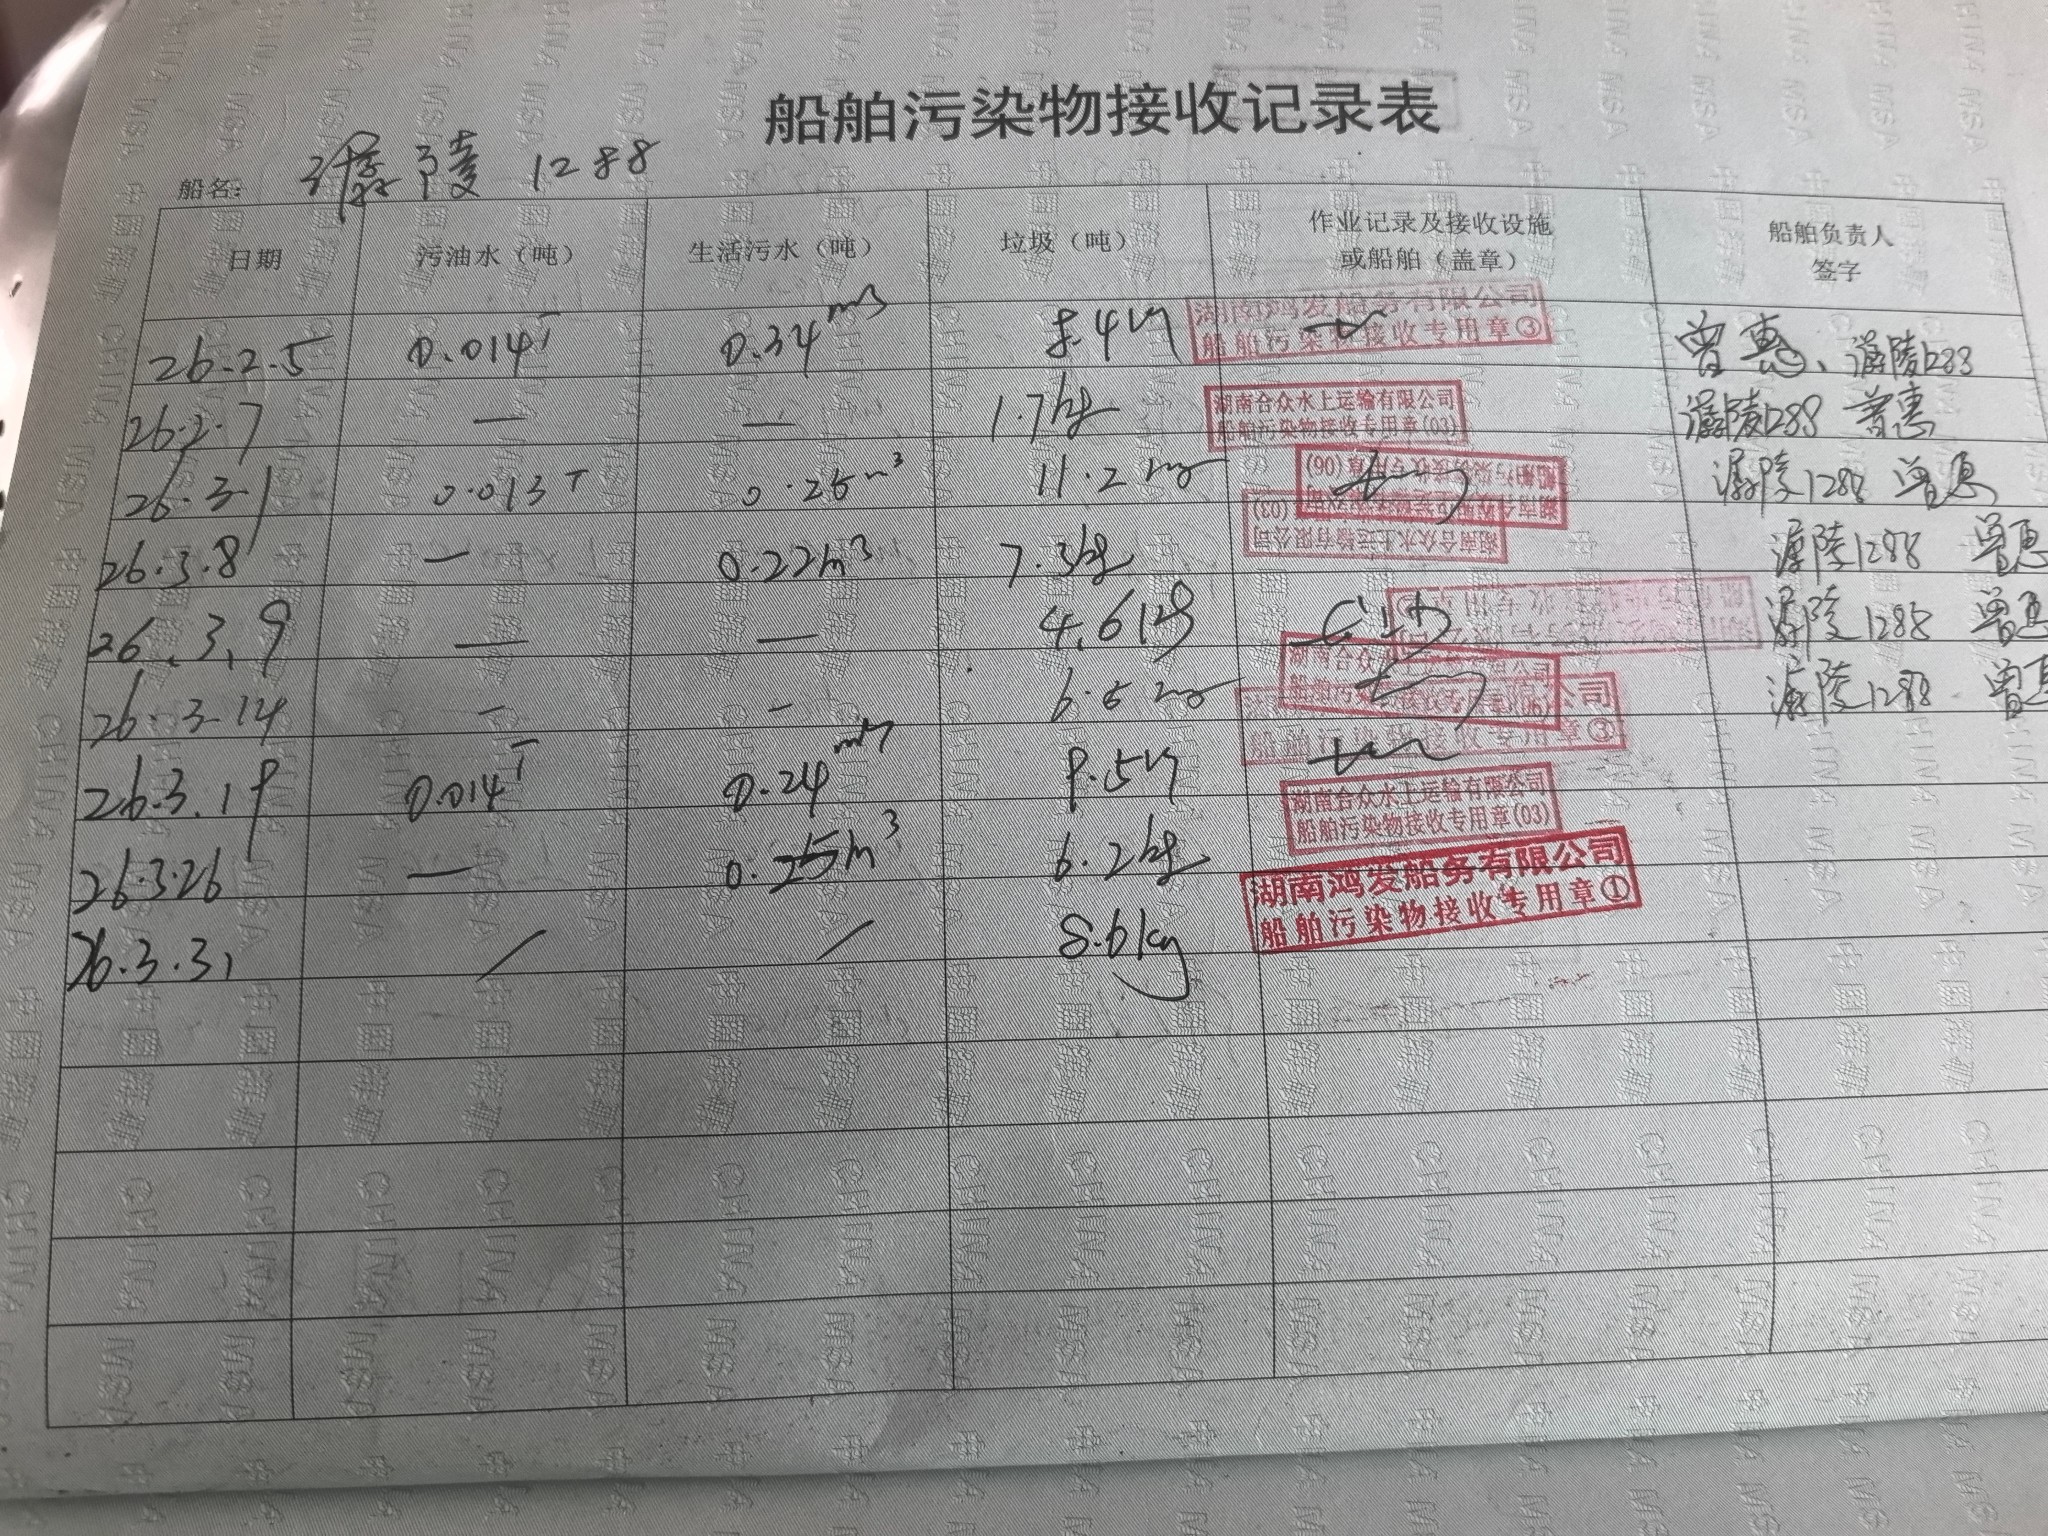 船舶污染物接收记录表
船名： 潺陵 1288
日期 污油水（吨） 生活污水（吨） 垃圾（吨） 作业记录及接收设施或船舶（盖章） 船舶负责人签字
26.2.5 0.014T 0.34m3 8.4kg 湖南鸿发船务有限公司 船舶污染物接收专用章③ 曾惠、潺陵1288
26.2.7 — — 1.7kg 湖南合众水上运输有限公司 船舶污染物接收专用章(03) 潺陵1288 曾惠
26.3.1 0.013T 0.25m³ 11.2kg 湖南合众水上运输有限公司 船舶污染物接收专用章(06) 潺陵1288 曾惠
26.3.8 — 0.22m³ 7.3kg 湖南合众水上运输有限公司 (03) 潺陵1288 曾惠
26.3.9 — — 4.6kg 潺陵1288 曾惠
26.3.14 — — 6.5kg 湖南合众 船舶污染物接收专用章(06) 潺陵1288 曾惠
26.3.19 0.014T 0.24m3 9.5kg 公司 船舶污染物接收专用章③
26.3.26 — 0.25m³ 6.2kg 湖南合众水上运输有限公司 船舶污染物接收专用章(03)
26.3.31 / / 8.6kg 湖南鸿发船务有限公司 船舶污染物接收专用章①